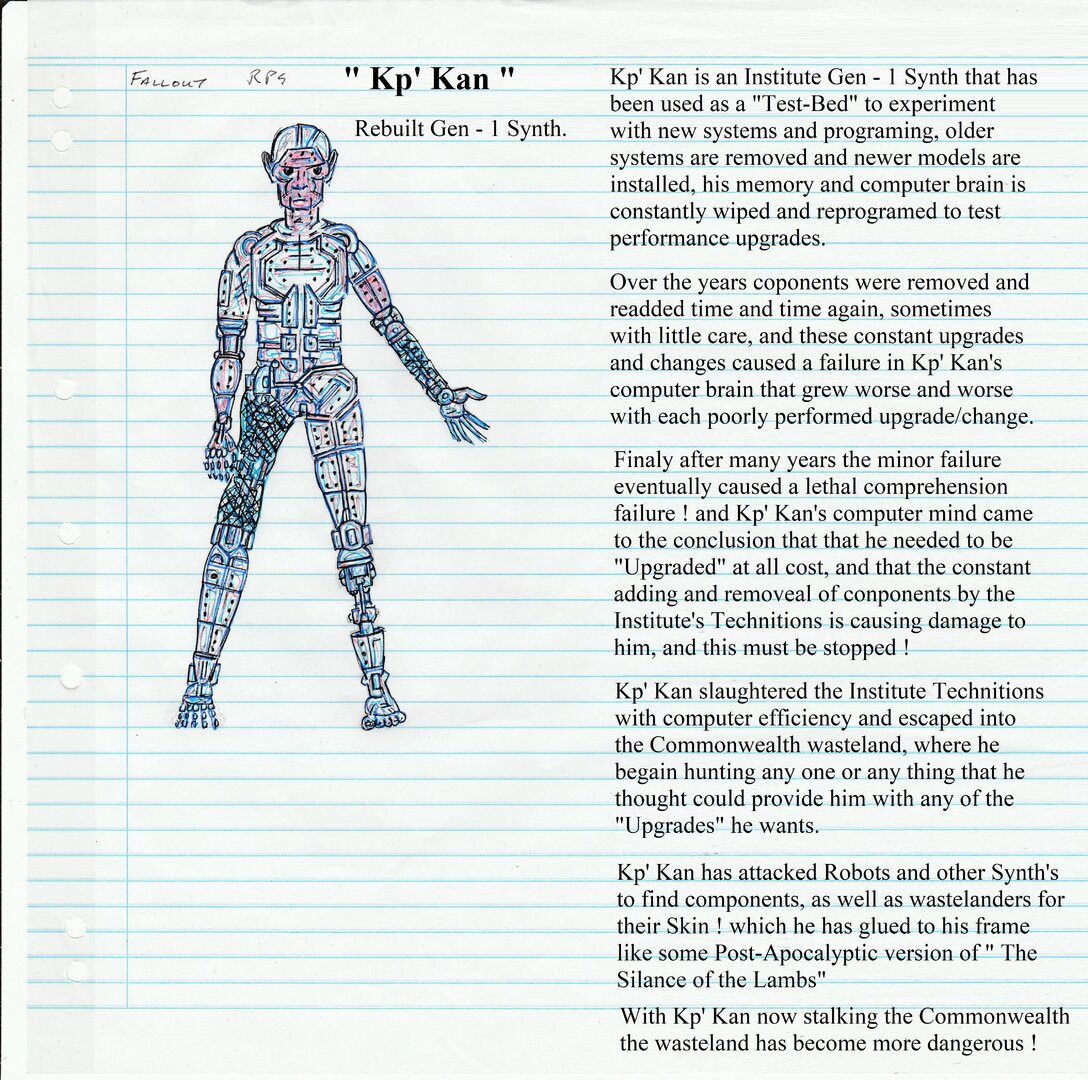 FALLOUT RPG
" Kp' Kan "
Rebuilt Gen - 1 Synth.
Kp' Kan is an Institute Gen - 1 Synth that has
been used as a "Test-Bed" to experiment
with new systems and programing, older
systems are removed and newer models are
installed, his memory and computer brain is
constantly wiped and reprogramed to test
performance upgrades.
Over the years coponents were removed and
readded time and time again, sometimes
with little care, and these constant upgrades
and changes caused a failure in Kp' Kan's
computer brain that grew worse and worse
with each poorly performed upgrade/change.
Finaly after many years the minor failure
eventually caused a lethal comprehension
failure ! and Kp' Kan's computer mind came
to the conclusion that that he needed to be
"Upgraded" at all cost, and that the constant
adding and removeal of conponents by the
Institute's Technitions is causing damage to
him, and this must be stopped !
Kp' Kan slaughtered the Institute Technitions
with computer efficiency and escaped into
the Commonwealth wasteland, where he
begain hunting any one or any thing that he
thought could provide him with any of the
"Upgrades" he wants.
Kp' Kan has attacked Robots and other Synth's
to find components, as well as wastelanders for
their Skin ! which he has glued to his frame
like some Post-Apocalyptic version of " The
Silance of the Lambs"
With Kp' Kan now stalking the Commonwealth
the wasteland has become more dangerous !